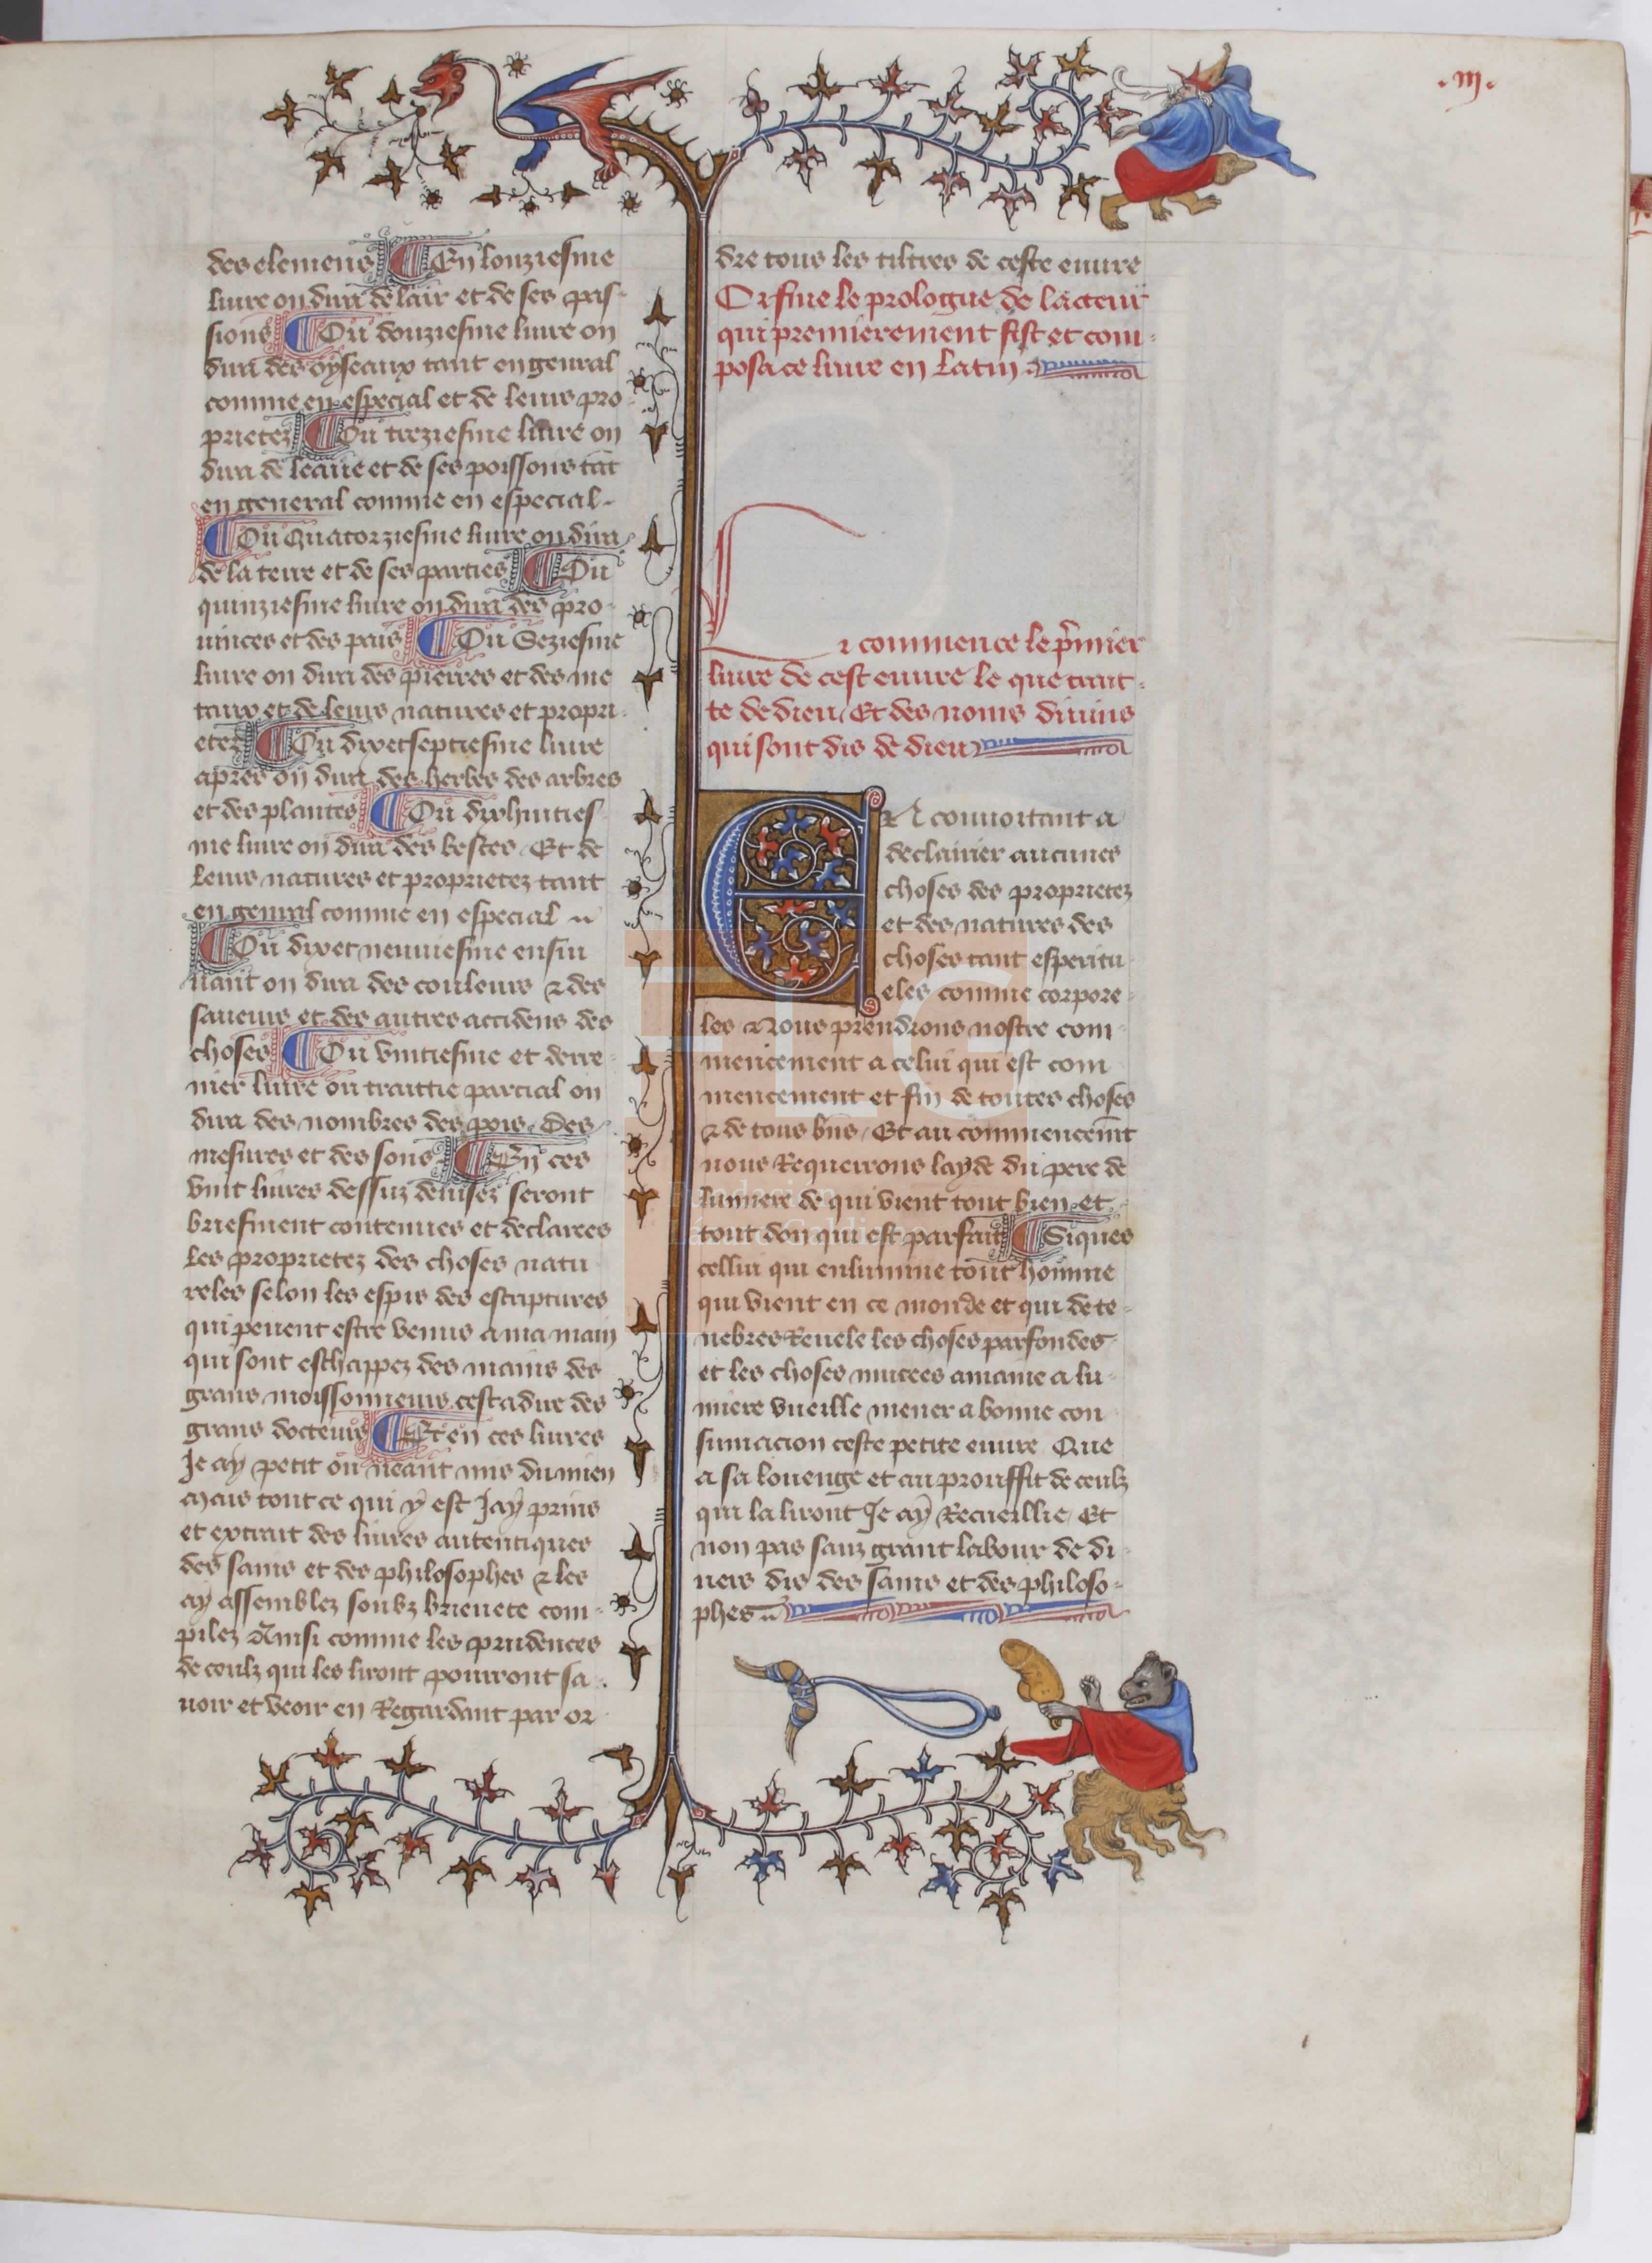 .iij.
des elemens En lonziesme
liure on dira de lair et de ses pas-
sions Ou douziesme liure on
dira des oyseaux tant en general
comme en especial et de leurs pro
prietez Ou treziesme liure on
dira de leaue et de ses poissons tāt
en general comme en especial-
Ou Quatorziesme liure on dira
de la terre et de ses parties Ou
quinziesme liure on dira des pro-
uinces et des pais Ou Seziesme
liure on dira des pierres et des me
taux et de leurs natures et propri-
etez Ou dixetseptiesme liure
apres on dira des herbes des arbres
et des plantes Ou dixhuities
me liure on dira des bestes. Et de
leurs natures et proprietez tant
en general comme en especial
Ou dixet neuuiesme ensiu
uant on dira des couleurs ⁊ des
saueurs et des autres accidens des
choses Ou vintiesme et derre-
nier liure ou traittie parcial on
dira des nombres des pois. Des
mesures et des sons. En ces
vint liures dessuz deuisez seront
briefment contenues et declarees
les proprietez des choses natu
reles selon les espis des escriptures
qui peuent estre venus a ma main
qui sont eschappez des mains des
grans moissonneurs. cest a dire des
grans docteurs Et en ces liures
Je ay petit ou neant mis du mien
Mais tout ce qui y est Jay prins
et extrait des liures autentiques
des sains et des philosophes ⁊ les
ay assemblez soubz brieuete com-
pilez Ainsi comme les prudences
de ceulz qui les liront pourront sa-
uoir et veoir en Regardant par or
dre tous les tiltres de ceste euure
Cy fine le prologue de lacteur
qui premierement fist et com-
posa ce liure en Latin
Cy commence le p̄mier
liure de cest euure le que trait-
te de dieu. Et des noms diuins
qui sont dis de dieu
EN conuoitant a
declairier aucunes
choses des proprietez
et des natures des
choses tant esperitu-
eles comme corpore-
les Nous prendrons nostre com-
mencement a celui qui est com
mencement et fin de toutes choses
⁊ de tous biens. Et au commencem̄t
nous Requerrons layde du pere de
lumiere de qui vient tout bien et
tout don qui est parfait Si ques
cellui qui enlumine tout homme
qui vient en ce monde et qui de te-
nebres Reuele les choses parfondes
et les choses mucees amaine a lu-
miere vueille mener a bonne con
sumacion ceste petite euure Que
a sa louenge et au prouffit de ceulz
qui la liront Je ay Recueillie. Et
non pas sanz grant labour de di-
uers dis des sains et des philoso-
phes